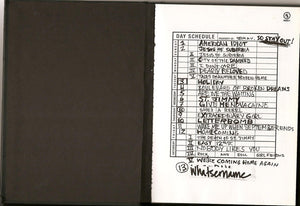 DAY SCHEDULE SO STAY OUT!
1 AMERICAN IDIOT
2 JESUS OF SUBURBIA
I JESUS OF SUBURBIA
II CITY OF THE DAMNED
III I DON'T CARE
IV DEARLY BELOVED
V TALES FROM ANOTHER BROKEN HOME
3 HOLIDAY
4 BOULEVARD OF BROKEN DREAMS
5 ARE WE THE WAITING
6 ST. JIMMY
7 GIVE ME NOVACAINE
8 SHE'S A REBEL
9 EXTRAORDINARY GIRL
10 LETTERBOMB
11 WAKE ME UP WHEN SEPTEMBER ENDS
12 HOMECOMING
I THE DEATH OF ST. JIMMY
II EAST 12TH ST.
III NOBODY LIKES YOU
IV ROCK AND ROLL GIRLFRIEND
V WE'RE COMING HOME AGAIN
13 Whatsername